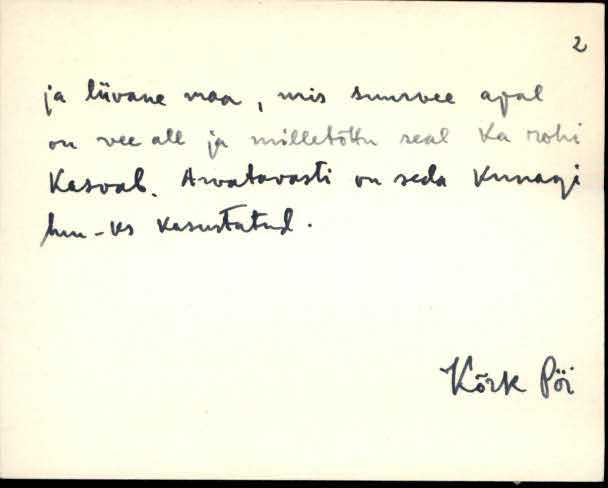 2
ja liivane maa, mis suurvee ajal
on vee all ja milletõttu seal ka rohi
kasvab. Arvatavasti on seda kunagi
hm-ks kasustatud.
Kõrk Pöi